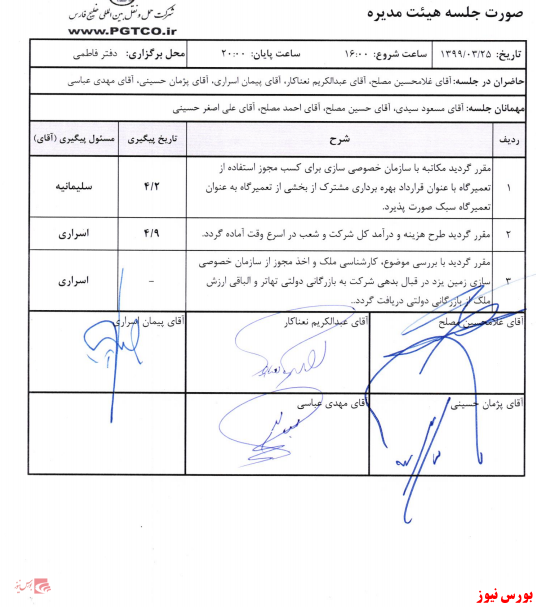 صورت جلسه هیئت مدیره
شرکت حمل و نقل بین المللی خلیج فارس
www.PGTCO.ir
تاریخ: ۱۳۹۹/۰۳/۲۵ ساعت شروع: ۱۶:۰۰ ساعت پایان: ۲۰:۰۰ محل برگزاری: دفتر فاطمی
حاضران در جلسه: آقای غلامحسین مصلح، آقای عبدالکریم نعناکار، آقای پیمان اسراری، آقای پژمان حسینی، آقای مهدی عباسی
مهمانان جلسه: آقای مسعود سیدی، آقای حسین مصلح، آقای احمد مصلح، آقای علی اصغر حسینی
ردیف شرح تاریخ پیگیری مسئول پیگیری (آقای)
مقرر گردید مکاتبه با سازمان خصوصی سازی برای کسب مجوز استفاده از
۱ تعمیرگاه با عنوان قرارداد بهره برداری مشترک از بخشی از تعمیرگاه به عنوان ۴/۲ سلیمانیه
تعمیرگاه سبک صورت پذیرد.
۲ مقرر گردید طرح هزینه و درآمد کل شرکت و شعب در اسرع وقت آماده گردد. ۴/۹ اسراری
مقرر گردید با بررسی موضوع، کارشناسی ملک و اخذ مجوز از سازمان خصوصی
۳ سازی زمین یزد در قبال بدهی شرکت به بازرگانی دولتی تهاتر و الباقی ارزش - اسراری
ملک از بازرگانی دولتی دریافت گردد..
آقای غلامحسین مصلح آقای عبدالکریم نعناکار آقای پیمان اسراری
آقای پژمان حسینی آقای مهدی عباسی
بورس نیوز
بورس نیوز